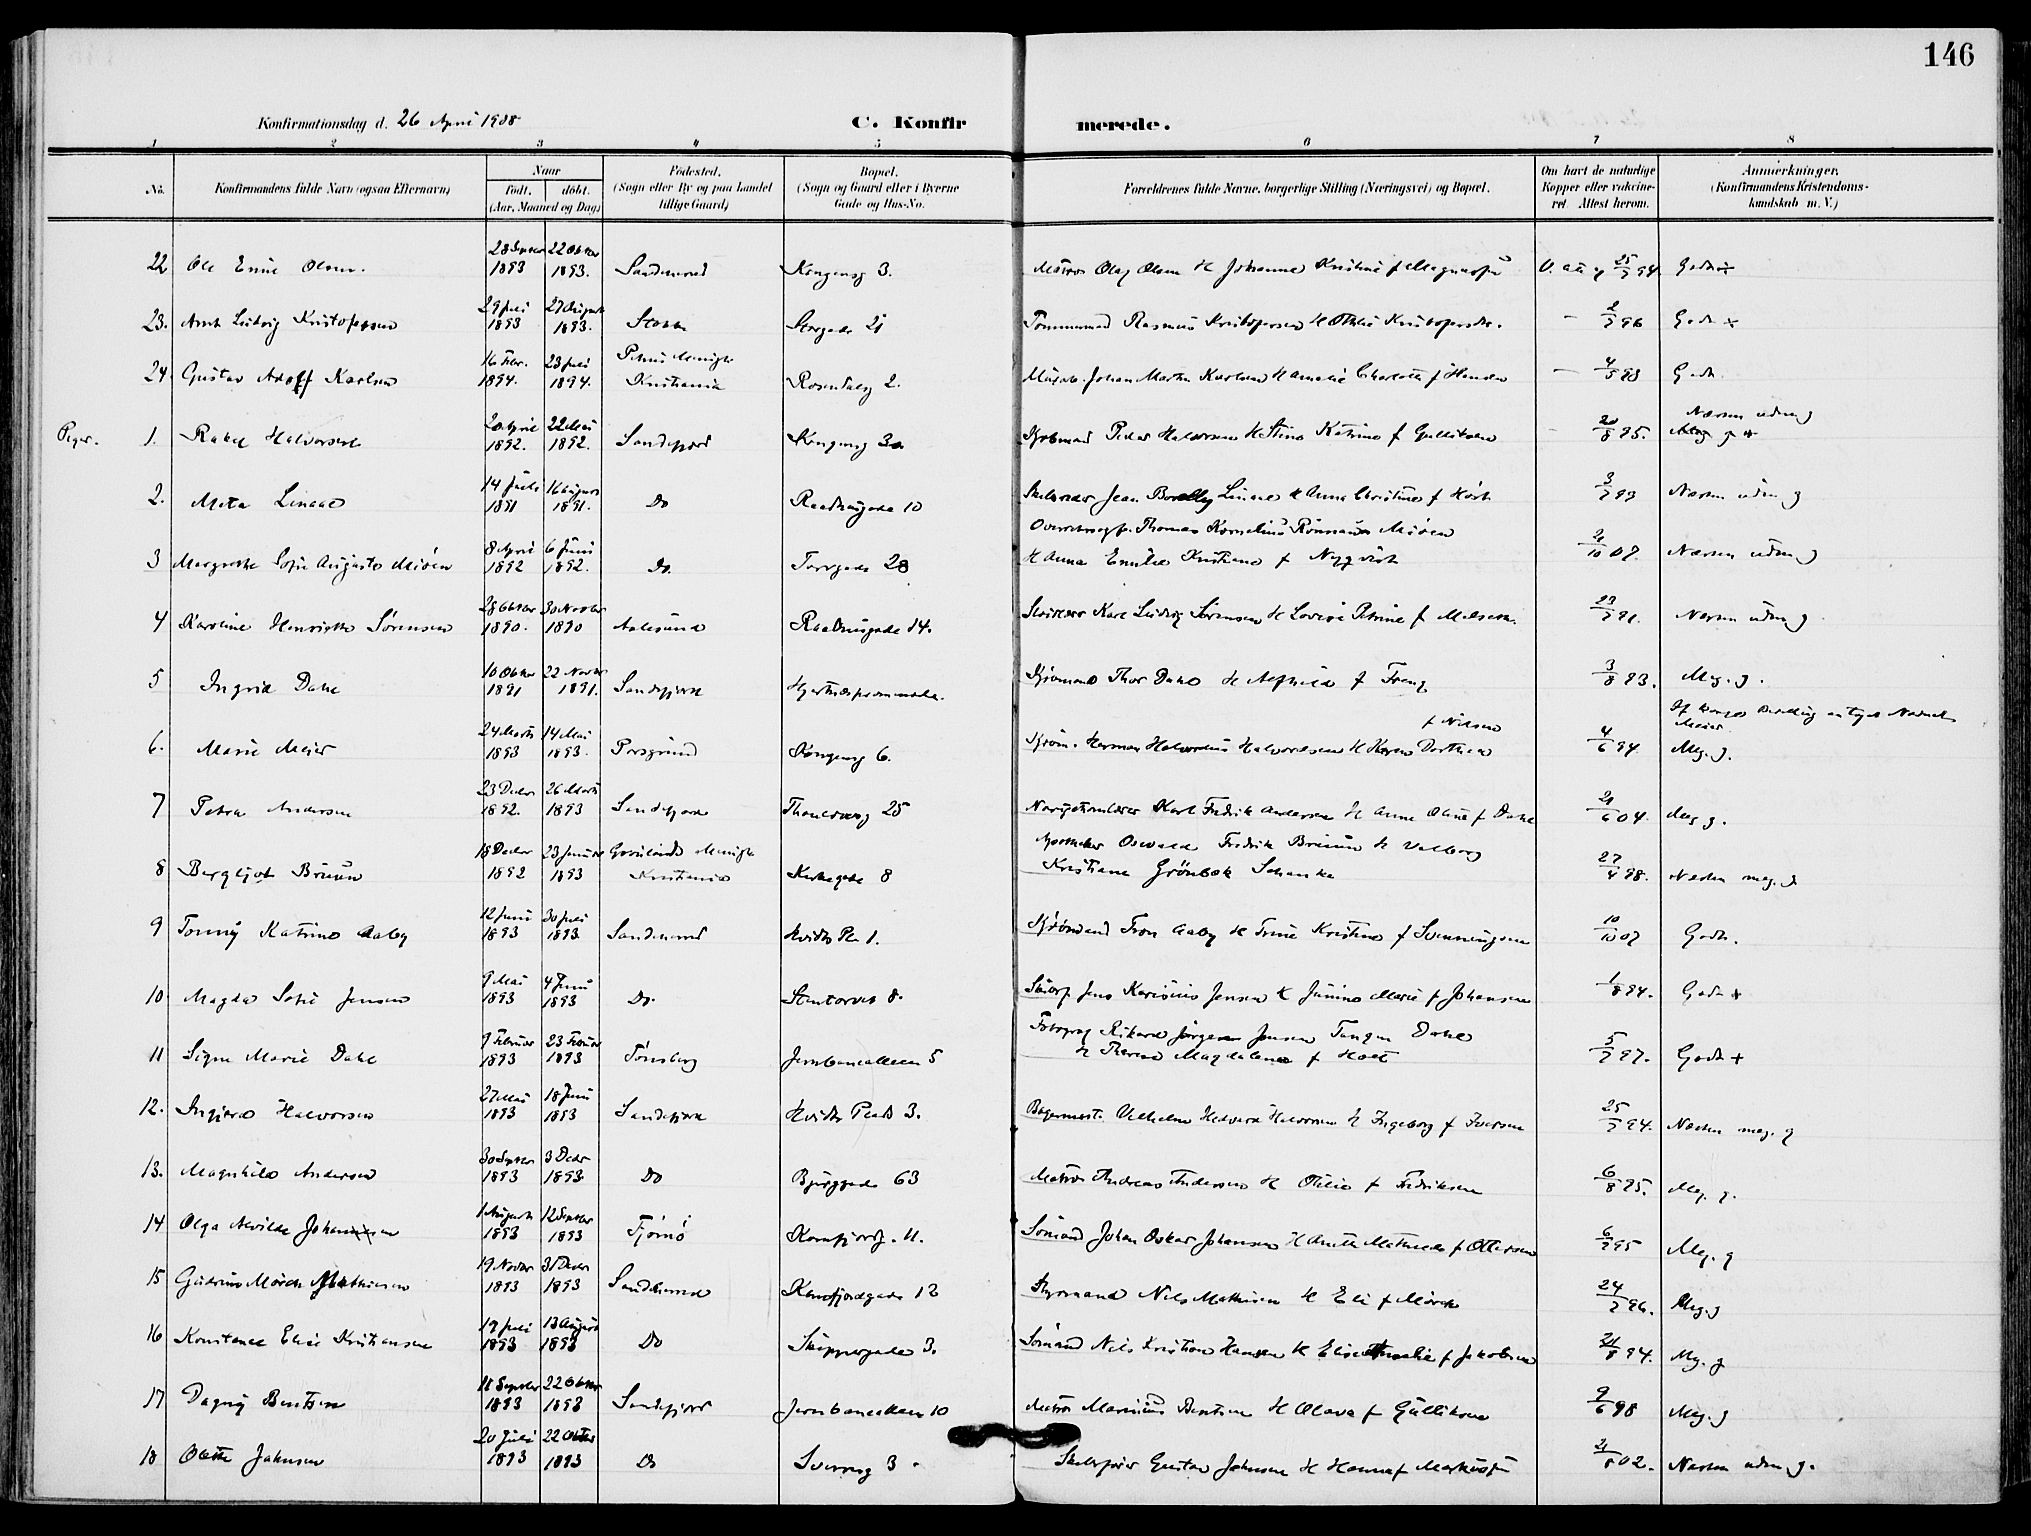 146
Konfirmationsdag d. 26 April 1908
C. Konfir merede.
1 2 3 4 5 6 7 8
No. Konfirmandens fulde Navn (ogsaa Efternavn) Naar født. døbt. (Aar, Maaned og Dag) Fødested. (Sogn eller By og paa Landet tillige Gaard) Bopæl. (Sogn og Gaard eller i Byerne Gade og Hus-No. Forældrenes fulde Navne, borgerlige Stilling (Næringsvei) og Bopæl. Om havt de naturlige Kopper eller vakcineret Attest herom. Anmerkninger. (Konfirmandens Kristendomskundskab m. V.)
22 Ole Emil Olsen. 1893 1893. Sandeherred Kongensg 3. Matros Olaf Olsen H Johanne Kristine f Magnusen 25/7 94. Godt +
23. Arnt Ludvig Kristofersen 29 Juli 1893 27 August 1893. Stokke Storgade 21 Tømmermand Rasmus Kristofersen H Otilie Kristofersdtr. – 2/7 96 Godt +
24 Gustav Adolf Karlsen 16 Febr. 1894. 23 Juli 1894. Petrus Menigh Kristiania Rosendalsg 2. Johan Martin Karlsen H Amalie Charlotte f Hansen – 4/5 98 Godt.
Piger. 1. Rakel Halvorsen 20 April 1892. 22 Mai 1892. Sandefjord Kongensg 30 Kjøbmand Peder Halvorsen H Stina Katrine f Gulliksen – 20/8 95. Næsten udm g
2. Meta Linaae 14 Juli 1891 16 August 1891. Do Raadhusgade 10 Skibsreder Jean Linaae H Anna Christine f Høst 3/7 93 Næsten udm g
3 Margrethe Sofie Augusta Miøen 8 April 1892 6 Juni 1892. Do. Torvgade 28 Overretssagf. Thomas Kornelius Rømnæs Miøen H Anna Emilie Kristiane f Nyqvist 21/10 07. Næsten udm g
4 Karoline Henriette Sørensen 28 Oktober 1890. 30 Novbr 1890 Aalesund Raadhusgade 14. Karl Ludvig Sørensen H Lovise Petrine f Melsen. 23/7 91. Næsten udm g
5 Ingrid Dahl 10 Oktober 1891 22 Novbr 1891. Sandefjord Hjertnespromenaden. Kjømand Thor Dahl H Alfhild f Freng 3/8 93. Meg. g.
6. Marie Meier 24 Marts 1893 14 Mai 1893. Porsgrund Kongensg 6. Kjøm. Herman Halvorsen H Karen Dorthea f Nilsen 4/6 94 Meg. g.
7 Petra Andersen 23 Decbr 1892. 26 Marts 1893 Sandefjord Thaulowsg 25 Navigationslærer Karl Fredrik Andersen H Anne Oline f Dahl 21/6 04. Meg g.
8 Bergljot Bruun 18 Decbr 1892 23 Januar 1893 Grønlands Menigh Kristiania Kirkegade 8 Apotheker Oswald Fredrik Bruun H Valborg Kristiane Grönbek Schanke 27/4 98. Næsten meg. g
9 Tonny Katrine Aaby 12 Juni 1893 30 Juli 1893 Sandeherred Hvidts Pl 1. Kjømand Tron Aaby H Trine Kristine f Svenningsen 10/10 07 Godt.
10 Magda Sofie Jensen 9 Mai 1893 4 Juni 1893 Do. Stentorvet 8. Jens Jensen H Junine Marie f Johansen 1/8 94. Godt +
11 Signe Marie Dahl 9 Februar 1893 23 Februar 1893 Tønsberg Jernbanealleen 5 Fotograf Rikard Jørgen Jensen Tangen Dahl H Therese Magdalene f Holt 5/7 97. Godt +
12. Ingjerd Halvorsen 27 Mai 1893 18 Juni 1893 Sandefjord Hvidts Plads 3. Bagermest. Vilhelm Hedvard Halvorsen H Ingeborg f Iversen 25/7 94. Næsten meg. g
13. Magnhild Andersen 30 Septbr 1893 3 Decbr 1893 Do Bjerggade 63 Matros Andreas Andersen H Otilie f Fredriksen 6/8 95. Meg. g.
14 Olga Alvilde Johannesen 1 August 1893 12 Septbr 1893 Tjømø Kamfjordg. 11. Sømand Johan Oskar Johansen H Anette Mathilde f Ottersen 6/7 95 Meg. g
15 Gudrun Mörch Mathisen 19 Novbr 1893 31 Decbr 1893 Sandeherred Kamfjordgade 12 Styrmand Nils Mathisen H Eli f Mörch 24/7 96. Meg. g
16 Konstance Elise Kristiansen 19 Juli 1893 13 August 1893 Do Skippergade 3. Sömand Nils Kristian Hansen H Elise Amalie f Jakobsen 21/8 94. Mg. g
17 Dagny Bentsen 11 Septbr 1893 22 Oktbr 1893 Sandefjord Jernbanealleen 10 Matros Marinius Bentsen H Olava f Gulliksen 9/6 98 Meg. g
18 Olette Johnsen 20 Juli 1893 22 Oktbr 1893 Do Sverresg 3. Skibsfører Gustav Johnsen H Hanna f Markussen 21/5 02. Næsten udm g.